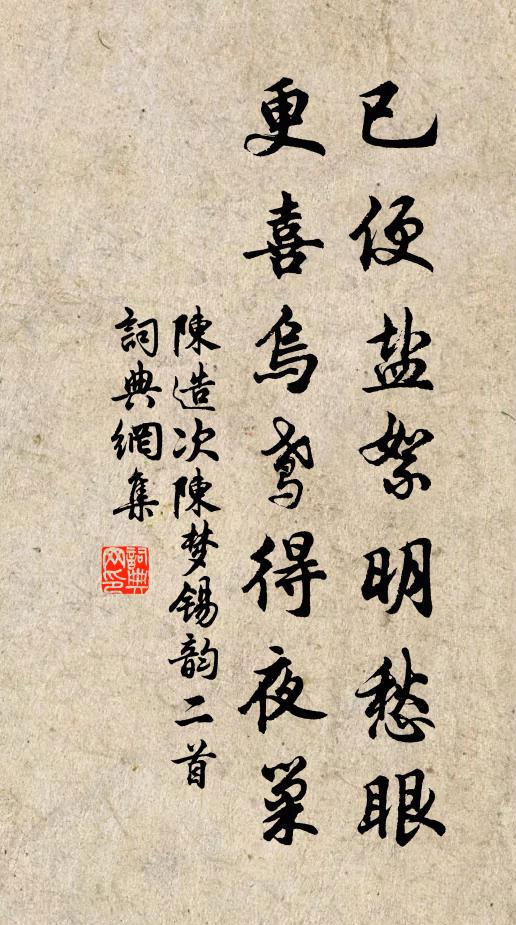 已便盐絮明愁眼
更喜乌鸢得夜巢
陳造次陳梦锡韵二首
詞典網集
詞典網印